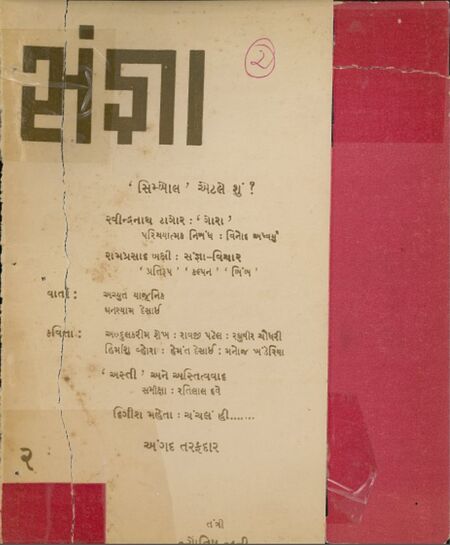 સંજ્ઞા
૨
‘સિમ્બોલ’ એટલે શું ?
રવીન્દ્રનાથ ટાગોર : ‘ગોરા’
પરિચયાત્મક નિબંધ : વિનોદ અધ્વર્યુ
રામપ્રસાદ બક્ષી : સંજ્ઞા-વિચાર
‘પ્રતિરૂપ’ ‘કલ્પન’ ‘બિંબ’
વાર્તા : અચ્યુત યાજ્ઞિક
ઘનશ્યામ દેસાઈ
કવિતા : અબ્દુલકરીમ શેખ : રાવજી પટેલ : રઘુવીર ચૌધરી
હિમાંશુ વ્હોરા : હેમંત દેસાઈ : મનોજ ખંડેરિયા
‘અસ્તી’ અને અસ્તિત્વવાદ
સમીક્ષા : રતિલાલ દવે
દિગીશ મહેતા : ચંચલં હી.......
અંગદ તરફદાર
૨
તંત્રી